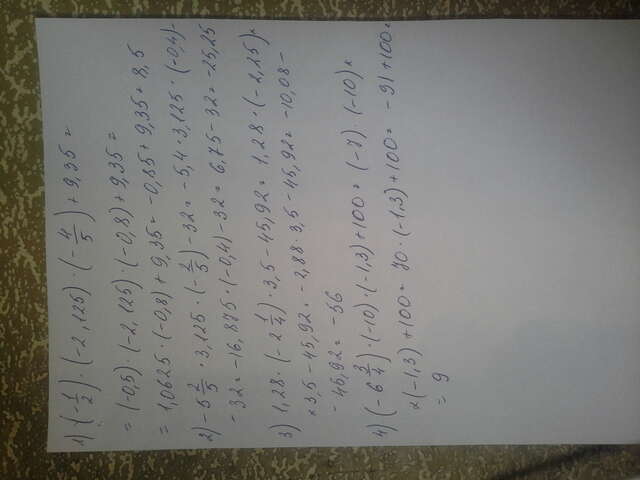 1) (-1/2) · (-2,125) · (-4/5) + 9,35 =
= (-0,5) · (-2,125) · (-0,8) + 9,35 =
= 1,0625 · (-0,8) + 9,35 = -0,85 + 9,35 = 8,5
2) -5 2/5 · 3,125 · (-2/5) - 32 = -5,4 · 3,125 · (-0,4) -
- 32 = -16,875 · (-0,4) - 32 = 6,75 - 32 = -25,25
3) 1,28 · (-2 1/4) · 3,5 - 45,92 = 1,28 · (-2,25) ×
× 3,5 - 45,92 = -2,88 · 3,5 - 45,92 = -10,08 -
- 45,92 = -56
4) (-6 3/4) · (-10) · (-1,3) + 100 = (-7) · (-10) ×
× (-1,3) + 100 = 70 · (-1,3) + 100 = -91 + 100 =
= 9